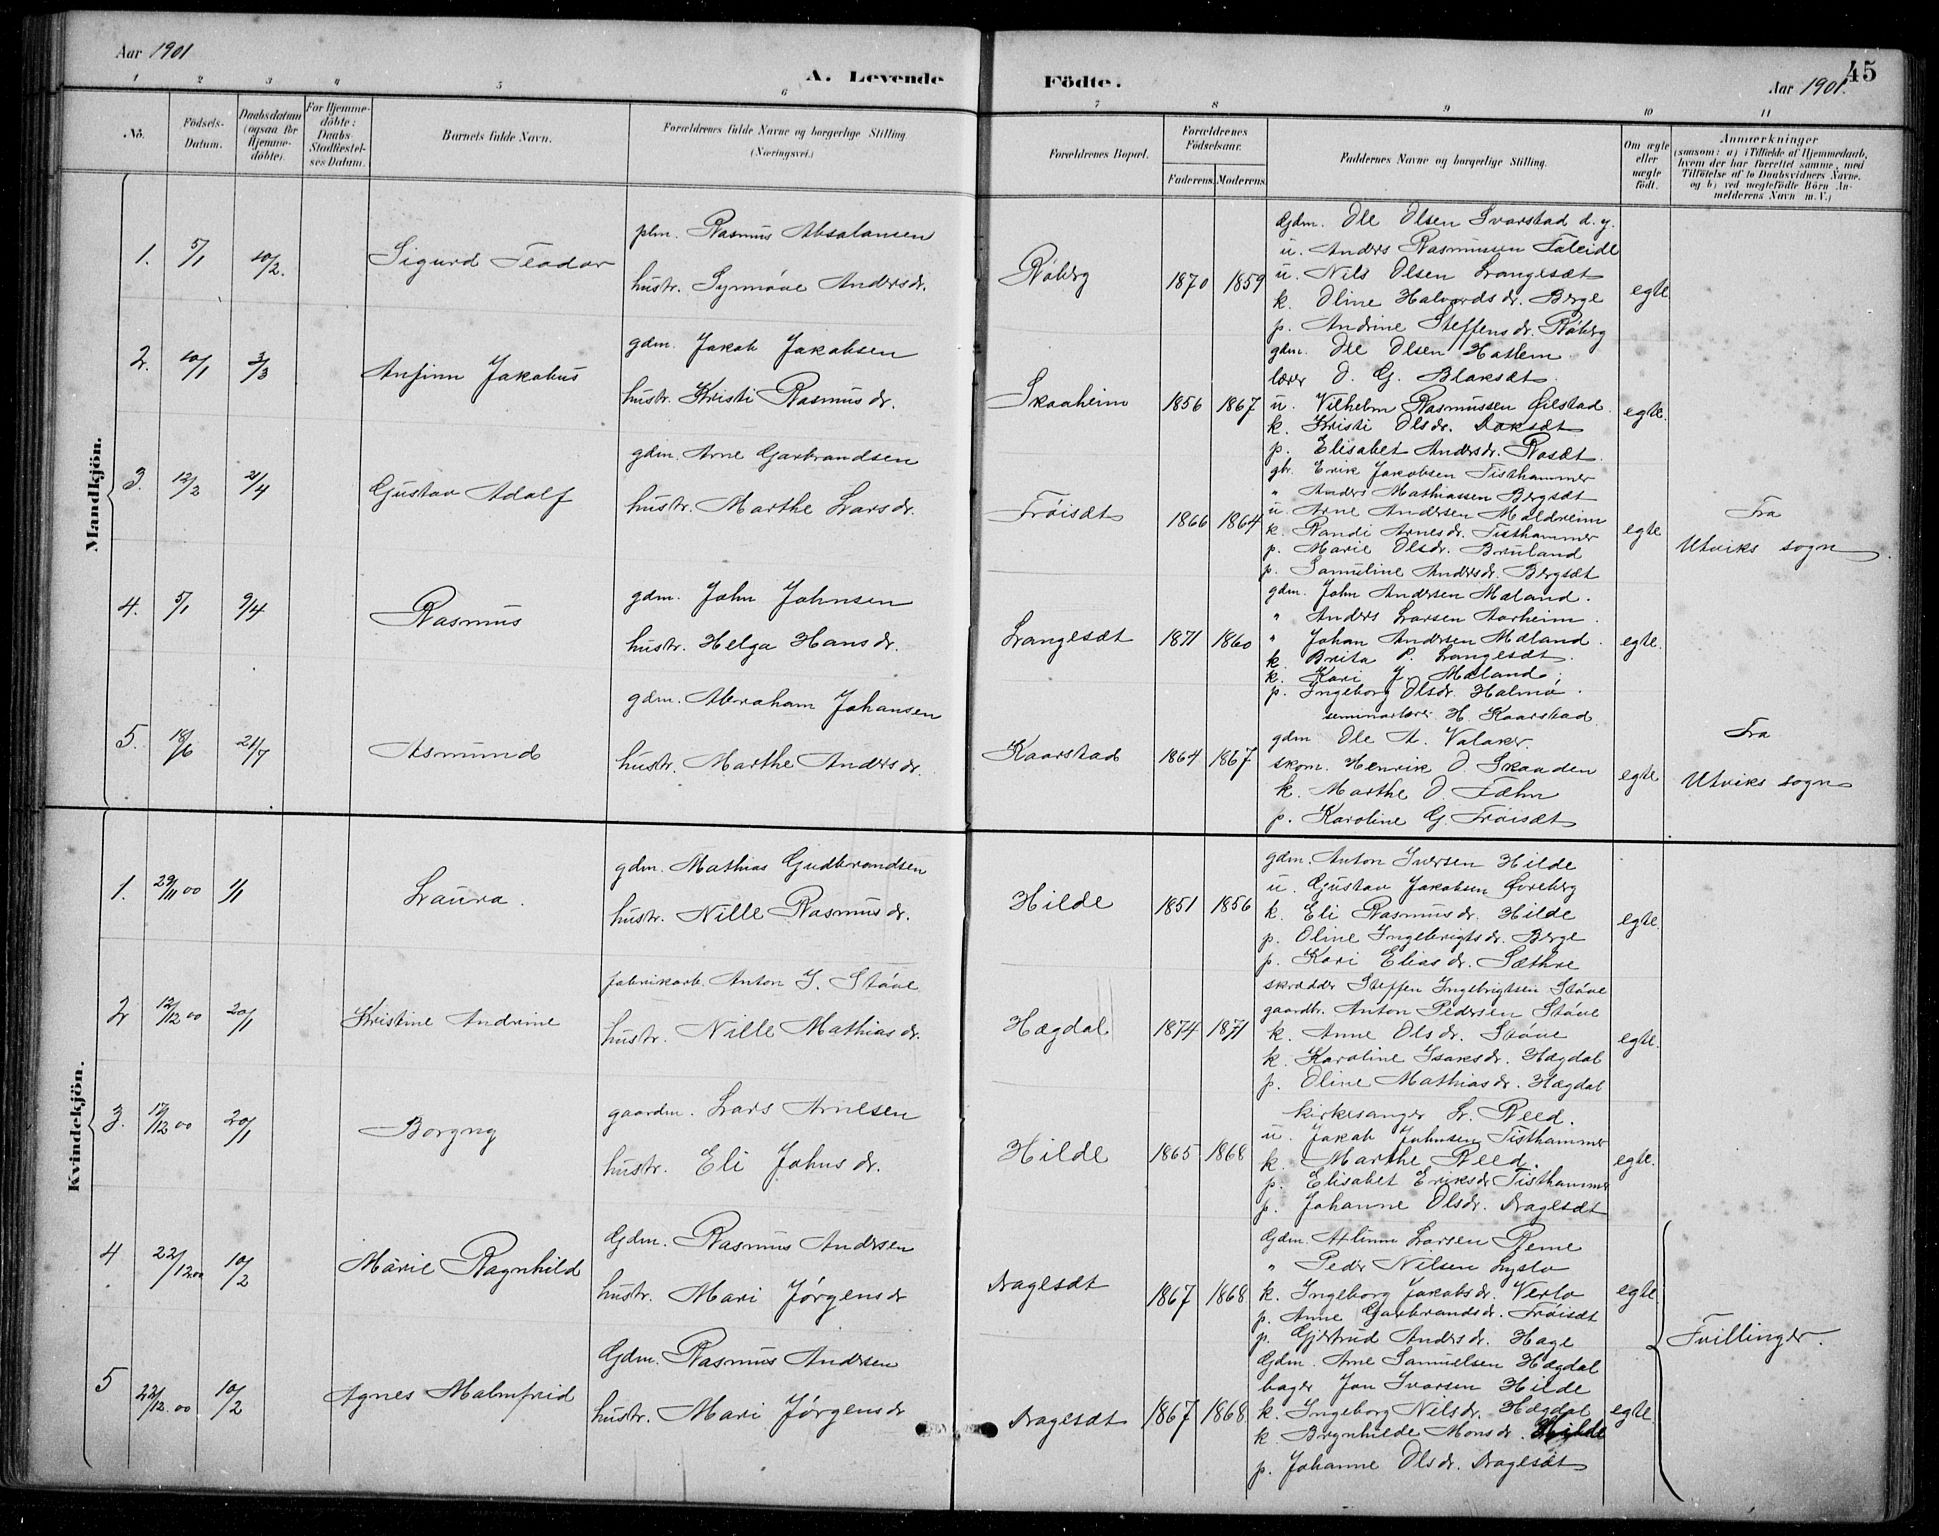 Aar 1901
A. Levende Födte.
Aar 1901.
45
1 2 3 4 5 6 7 8 9 10 11
No.
Födsels-Datum.
Daabsdatum (ogsaa for Hjemme-döbte).
For Hjemme-döbte: Daabs-Stadfæstel-ses Datum.
Barnets fulde Navn.
Forældrenes fulde Navne og borgerlige Stilling (Næringsvei.)
Forældrenes Bopæl.
Forældrenes Födselsaar.
Faderens. Moderens.
Faddernes Navne og borgerlige Stilling.
Om ægte eller uægte födt.
Anmærkninger
(saasom: a) i Tilfælde af Hjemmedaab, hvem der har forrettet samme, med Tilföielse af to Daabsvidners Navne. og b) ved uægtefödte Börn Anmelderens Navn m. V.)
Mandkjön.
1. 5/1 10/2. Sigurd Teodor
plm. Rasmus Absalonsen
hustr. Synnøve Andersdr.
Røberg 1870 1859
Gdm. Ole Olsen Svarstad d. y.
u. Anders Rasmussen Faleide
u. Nils Olsen Langesæt
k. Oline Halvordsdr. Berge
p. Andrine Steffensdr. Røberg
egte
2. 10/1 3/3 Anfinn Jakobus
gdm. Jakob Jakobsen
hustr. Kristi Rasmusdr.
Skaaheim 1856 1867
gdm. Ole Olsen Hatlem
lærer O. G. Blaksæt.
u. Vilhelm Rasmussen Øilstad.
k. Kristi Olsdr. Aaksæt
p. Elisabet Andersdr. Rosæt.
egte.
3. 12/2 21/4 Gustav Adolf
gdm. Arne Garbrandsen
hustr. Marthe Larsdr.
Frøisæt 1866 1864
gbr. Erik Jakobsen Tisthammer
" Anders Mathiassen Bergsæt
u. Arne Andersen Maldreim
k. Randi Arnesdr. Tisthammer
p. Marie Olsdr. Bruland
p. Samuline Andersdr. Bergsæt
egte
Fra
Utviks sogn.
4. 5/1 9/4 Rasmus
gdm. John Johnsen
hustr. Helga Hansdr.
Langesæt 1871 1860
gdm. John Andersen Mæland.
" Anders Larsen Aarheim.
" Johan Andersen Mæland.
k. Brita P. Langesæt.
k. Kari J. Mæland;
p. Ingeborg Olsdr. Holmø.
egte.
5. 18/6 21/7 Asmund
gdm. Abraham Johansen
hustr. Marthe Andersdr.
Kaarstad 1864 1867
seminarlærer H. Kaarstad.
gdm Ole A. Valaker.
skom. Henrik O. Skaaden
k. Marthe O. Fæhn
p. Karoline G. Frøisæt
egte
Fra
Utviks sogn
Kvindekjön.
1. 29/11 00 1/1 Laura.
gdm. Mathias Gudbrandsen
hustr. Nille Rasmusdr.
Hilde 1851 1856
gdm. Anton Iversen Hilde
u. Gustav Jakobsen Øvreberg
k. Eli Rasmusdr. Hilde
p. Oline Ingebrigtsdr. Berge
p. Kari Eliasdr. Sæthre
egte.
2 12/12 00 20/1 Kristine Andrine
fabrikarb. Anton I. Støve
hustr. Nille Mathiasdr.
Hægdal 1874 1871
skrædder Steffen Ingebrigtsen Støve
gaardbr. Anton Pedersen Støve
k. Anne Olsdr. Støve
k. Karoline Isaksdr. Hægdal
p. Oline Mathiasdr. Hægdal
egte.
3. 17/12 00 20/1 Borgny
gaardm. Lars Arnesen
hustr. Eli Johnsdr.
Hilde 1865 1868
kirkesanger L. Reed.
u. Jakob Johnsen Tisthammer
k. Marthe Reed.
p. Elisabet Eriksdr. Tisthammer
p. Johanne Olsdr. Dragesæt
egte.
4 22/12 00 10/2 Marie Ragnhild
Gdm. Rasmus Andersen
hustr. Mari Jørgensdr
Dragesæt 1867 1868
Gdm. Larsen
" Peder Nilsen Lysto
k. Ingeborg Jakobsdr. Verlo
p. Anne Garbrandsdr. Frøisæt
p. Gjertrud Andersdr. Hage
egte.
Tvillinger.
5 22/12. 00 10/2 Agnes Malmfrid
Gdm. Rasmus Andersen
hustr. Mari Jørgensdr
Dragesæt 1867 1868
Gdm. Arne Samuelsen Hægdal
bager Jon Ivarsen Hilde
k. Ingeborg Nilsdr. Hægdal
k. Brynhilde Monsdr. Hilde
p. Johanne Olsdr. Dragesæt
egte.